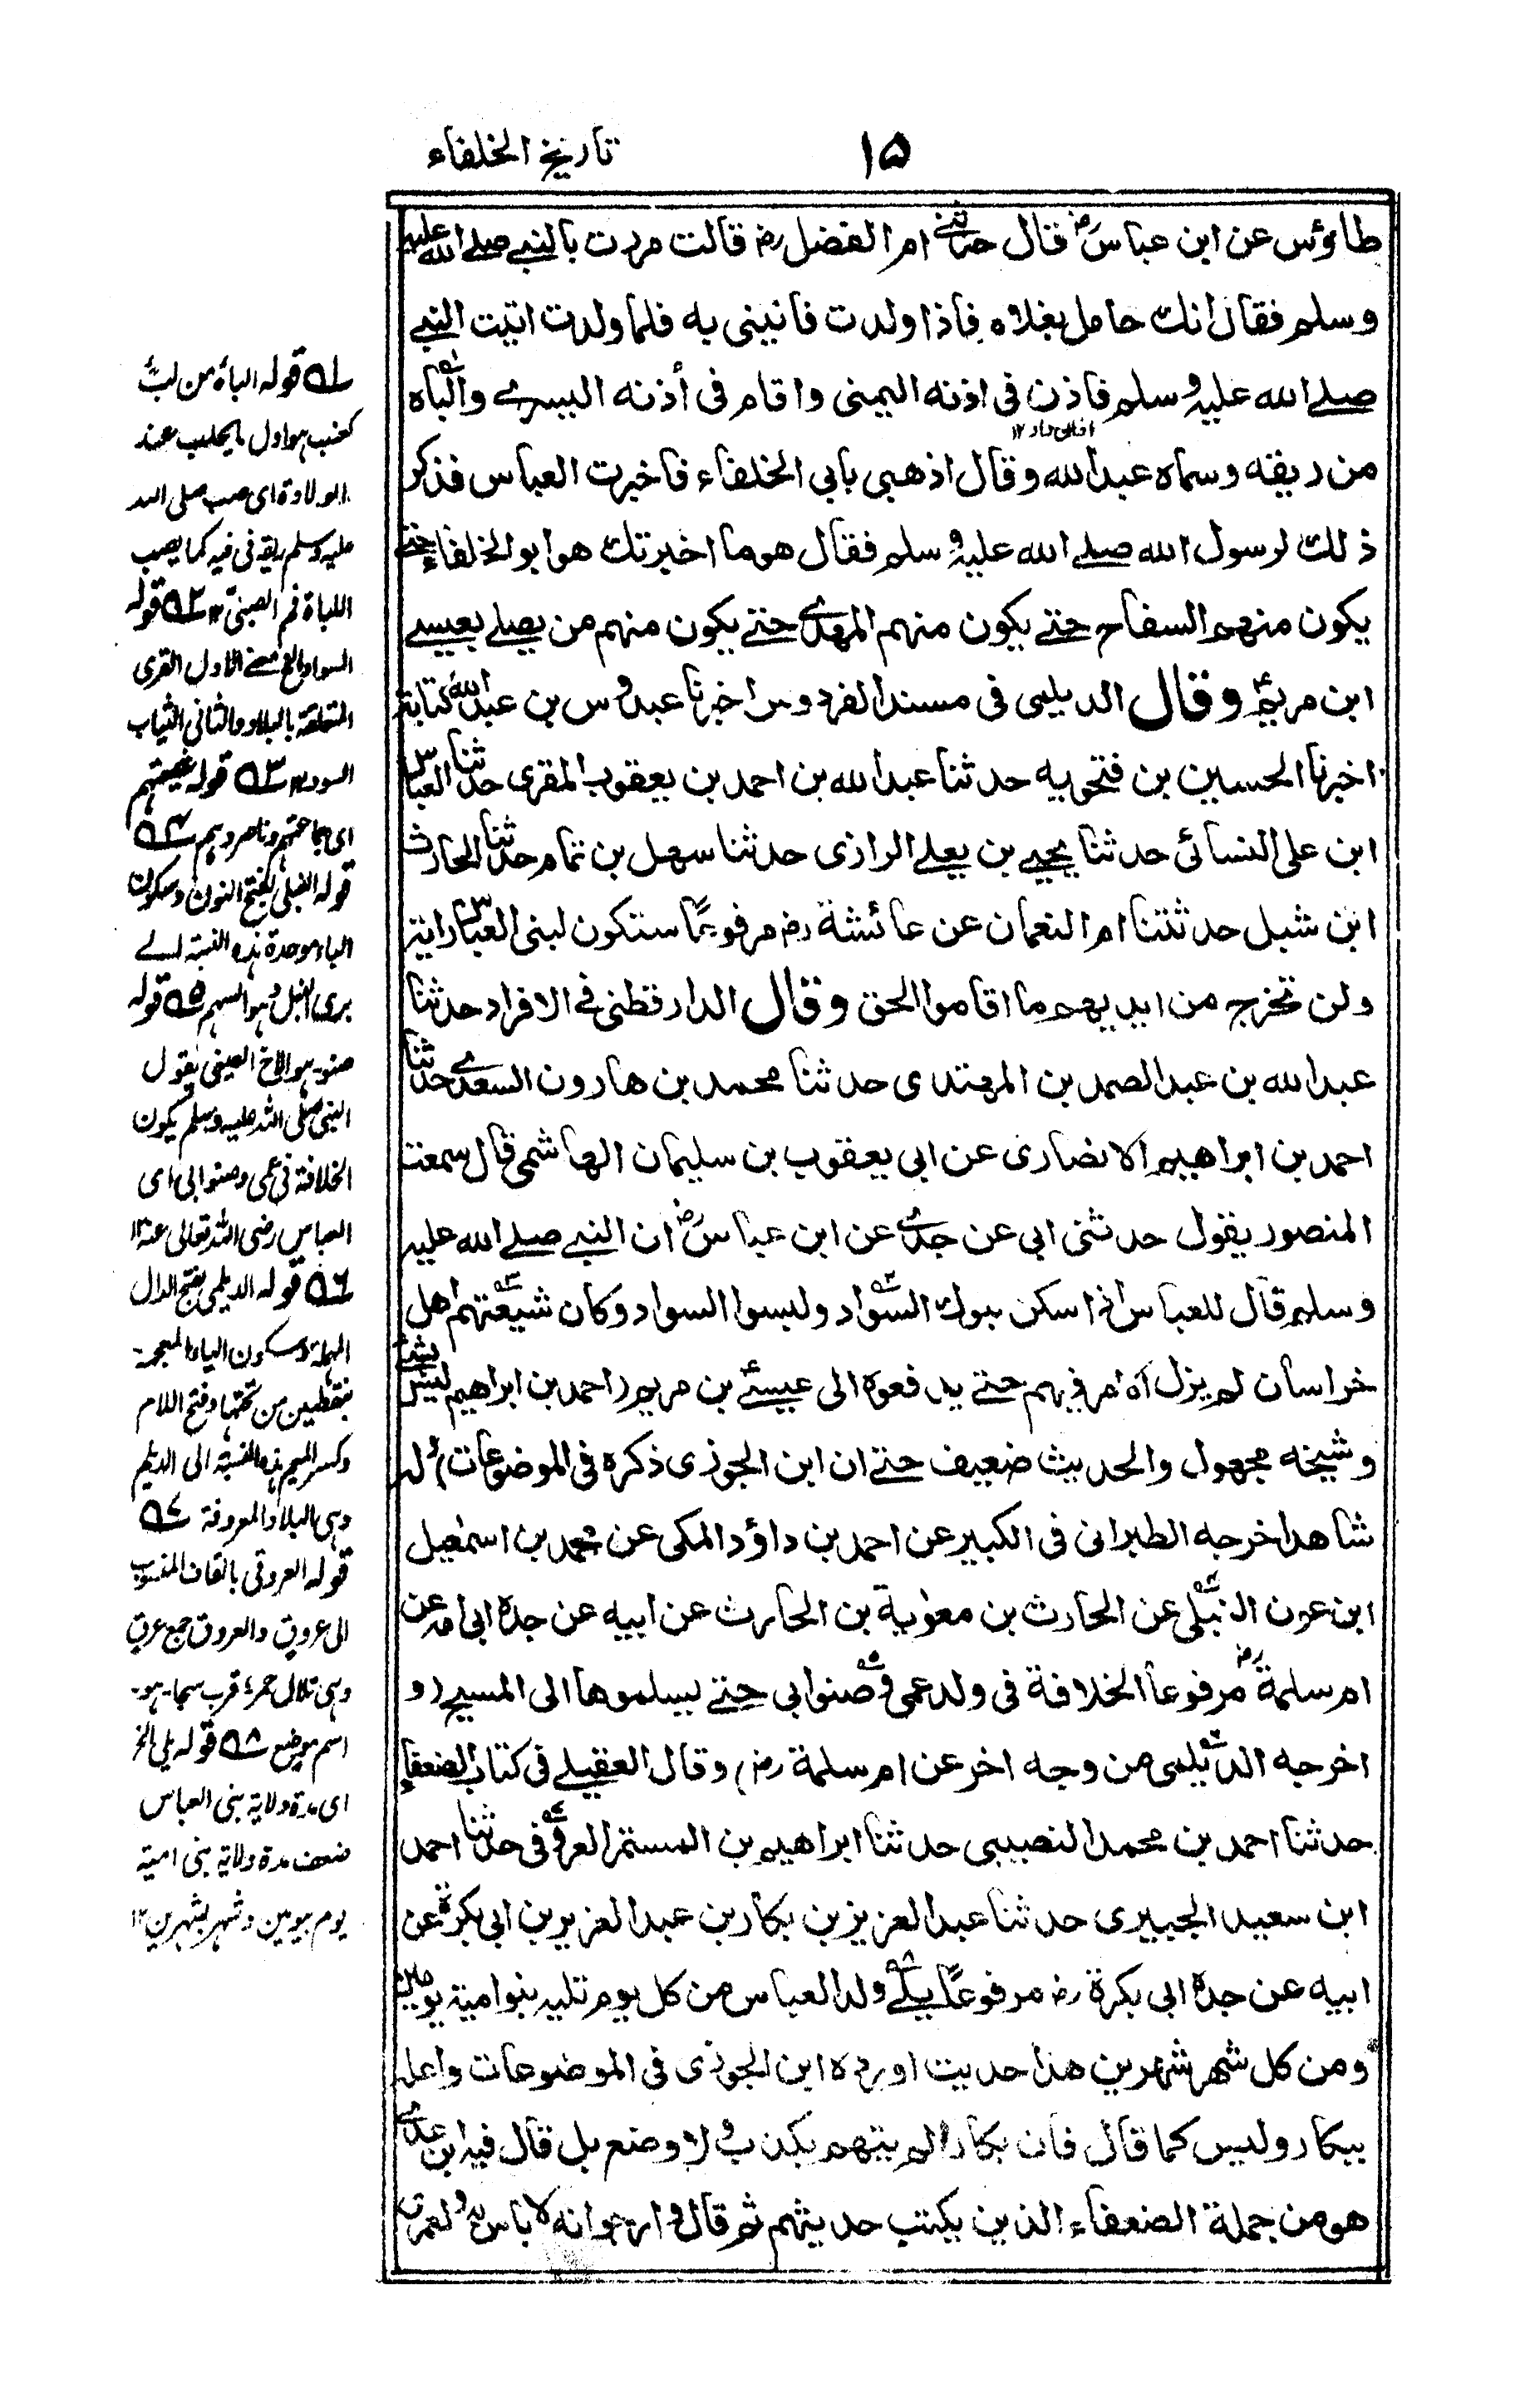 ١٥
تاريخ الخلفاء
طاؤس عن ابن عباس رض قال حدثتنى ام الفضل رض قالت مررت بالنبى صلى الله عليه
وسلم فقال انك حامل بغلام فاذا ولدت فاتينى به فلما ولدت اتيت النبى
صلى الله عليه وسلم فاذن فى اذنه اليمنى واقام فى أذنه اليسرى والباه
من ريقه وسماه عبد الله وقال اذهبى بابى الخلفاء فاخبرت العباس فذكر
ذلك لرسول الله صلى الله عليه وسلم فقال هو ما اخبرتك هو ابو الخلفاء حتى
يكون منهم السفاح حتى يكون منهم المهدى حتى يكون منهم من يصلى بعيسى
ابن مريم وقال الديلمى فى مسند الفردوس اخبرنا عبدوس بن عبد الله كتابة
اخبرنا الحسين بن فتحويه حدثنا عبد الله بن احمد بن يعقوب المقرى حدثنا العباس
ابن على النسائى حدثنا يحيى بن يعلى الرازى حدثنا سهل بن تمام حدثنا الحارث
ابن شبل حدثتنا ام النعمان عن عائشة رض مرفوعًا ستكون لبنى العباس راية
ولن تخرج من ايديهم ما اقاموا الحق وقال الدارقطنى فى الافراد حدثنا
عبد الله بن عبد الصمد بن المهتدى حدثنا محمد بن هارون السعدى حدثنا
احمد بن ابراهيم الانصارى عن ابى يعقوب بن سليمان الهاشمى قال سمعت
المنصور يقول حدثنى ابى عن جدى عن ابن عباس رض ان النبى صلى الله عليه
وسلم قال للعباس اذا سكن بنوك السواد ولبسوا السواد وكان شيعتهم اهل
خراسان لم يزل الامر فيهم حتى يدفعوه الى عيسى بن مريم (احمد بن ابراهيم ليس بشئ
وشيخه مجهول والحديث ضعيف حتى ان ابن الجوزى ذكره فى الموضوعات) وله
شاهد اخرجه الطبرانى فى الكبير عن احمد بن داؤد المكى عن محمد بن اسمعيل
ابن عون النبلى عن الحارث بن معوية بن الحارث عن ابيه عن جده ابى امه عن
ام سلمة رض مرفوعا الخلافة فى ولد عمى وصنو ابى حتى يسلموها الى المسيح (و
اخرجه الديلمى من وجه اخر عن ام سلمة رض) وقال العقيلى فى كتاب الضعفاء
حدثنا احمد بن محمد النصيبى حدثنا ابراهيم بن المستمر العروقى حدثنا احمد
ابن سعيد الجبيرى حدثنا عبد العزيز بن بكار بن عبد العزيز بن ابى بكرة عن
ابيه عن جده ابى بكرة رض مرفوعًا يلى ولد العباس من كل يوم تليه بنو امية يومين
ومن كل شهر شهرين هذا حديث اورده ابن الجوزى فى الموضوعات واعله
ببكار وليس كما قال فان بكارا لم يتهم بكذب ولا وضع بل قال فيه ابن عدى
هو من جملة الضعفاء الذين يكتب حديثهم ثم قال وارجو انه لا باس به ولعمرى
ـه١ قوله الباه من لبئ
كعنب هو اول ما يحلب عند
الولادة اى صب صلى الله
عليه وسلم ريقه فى فيه كما يصب
اللباة فم الصبى ١٢ ـه٢ قوله
السواد الخ معنى الاول القرى
المتعلقة بالبلاد والثانى الثياب
السود ١٢ ـه٣ قوله شيعتهم
اى جماعتهم وناصروهم ـه٤
قوله النبلى بفتح النون وسكون
الباء موحدة هذه النسبة الى
برى النبل وهو السهم ـه٥ قوله
صنو هو الاخ العينى يقول
النبى صلى الله عليه وسلم يكون
الخلافة فى عمى وصنو ابى اى
العباس رضى الله تعالى عنه ١٢
ـه٦ قوله الديلمى بفتح الدال
المهملة وسكون الياء المعجمة
بنقطتين من تحتها وفتح اللام
وكسر الميم هذه النسبة الى الديلم
وهى البلاد المعروفة ـه٧
قوله العروقى بالقاف المنسوب
الى عروق والعروق جمع عرق
وهى تلال حمر قرب سجا هو
اسم موضع ـه٨ قوله يلى الخ
اى مدة ولاية بنى العباس
ضعف مدة ولاية بنى امية
يوم بيومين وشهر بشهرين ١٢